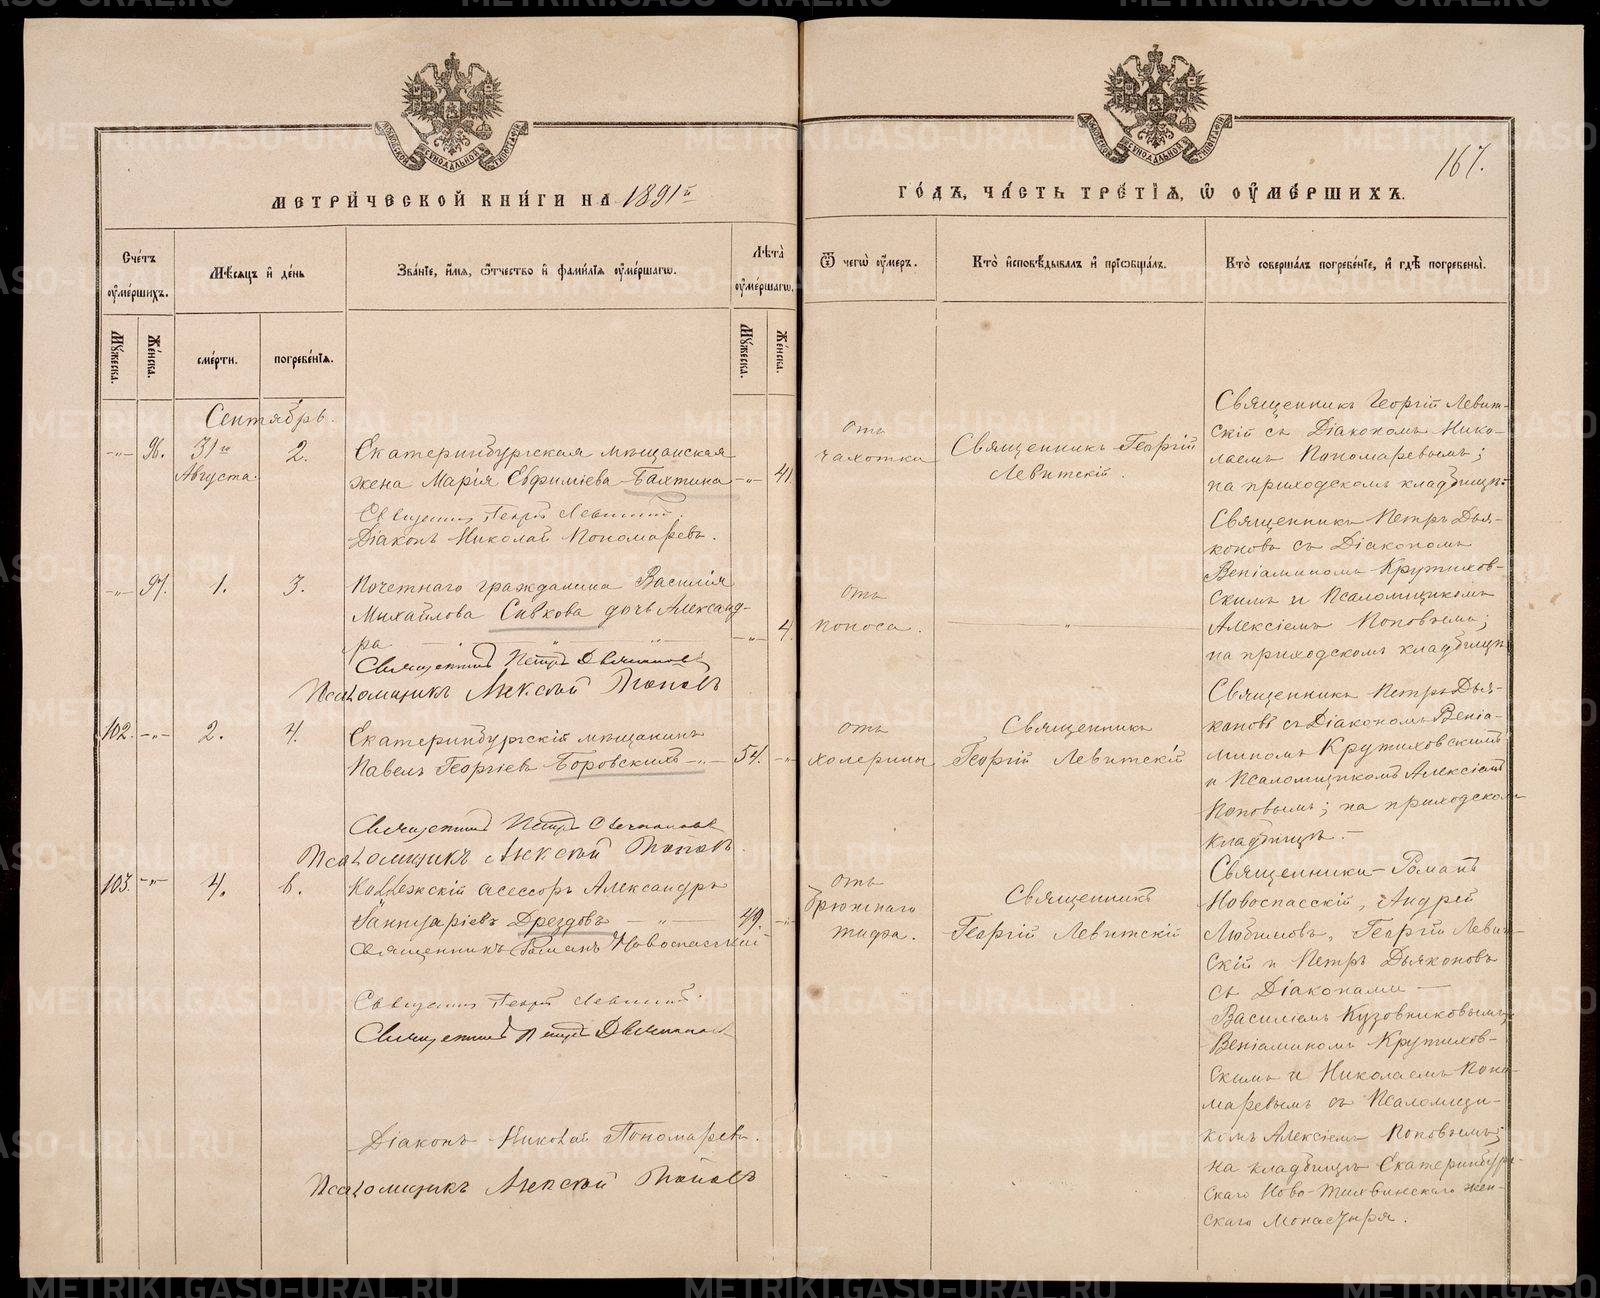 МЕТРИ́ЧЕСКОЙ КНИ́ГИ НА 1891й
ГО́ДЪ, ЧА́СТЬ ТРЕ́ТІЯ, Ѿ ОУМЕ́РШИХЪ.
167.
Сче́тъ оумершихъ.
Мужеска.
Же́нска.
Мѣ́сяцъ и де́нь
сме́рти.
погребе́нїѧ.
Зва́нїе, и́мѧ, ѻ҆́тчество и҆ фами́лїѧ оуме́ршагѡ.
Лѣ́та оуме́ршагѡ.
Мужеска.
Же́нска.
Ѿ чегѡ̀ оу҆́меръ.
Кто̀ и҆сповѣ́дывалъ и҆ прїѡбща́лъ.
Кто̀ соверша́лъ погребе́нїе, и҆ гдѣ̀ погребены̀.
Сентябрь.
-"- 96. 31го Августа. 2.
Екатеринбургская мѣщанская
жена Марія Евфиміева Бахтина -"- 41.
Священникъ Георгій Левитскій.
Діаконъ Николай Пономаревъ.
отъ
чахотки
Священникъ Георгій
Левитскій.
Священникъ Георгій Левит-
скій съ Діакономъ Нико-
лаемъ Пономаревымъ;
на приходскомъ кладбищѣ.
-"- 97. 1. 3.
Почетнаго гражданина Василія
Михайлова Сивкова дочь Александ-
ра -"- 4.
Священникъ Петръ Дьяконовъ
Псаломщикъ Алексѣй Поповъ
отъ
поноса.
"
Священникъ Петръ Дья-
коновъ съ Діакономъ
Веніаминомъ Крутихов-
скимъ и Псаломщикомъ
Алексіемъ Поповымъ;
на приходскомъ кладбищѣ
102. -"- 2. 4.
Екатеринбургскій мѣщанинъ
Павелъ Георгіевъ Боровскихъ -"- 54. -"-
Священникъ Петръ Дьяконовъ
Псаломщикъ Алексѣй Поповъ.
отъ
холерины
Священникъ
Георгій Левитскій
Священникъ Петръ Дья-
коновъ съ Діакономъ Веніа-
миномъ Крутиховскимъ
и Псаломщикомъ Алексіемъ
Поповымъ; на приходском
кладбищѣ.-
103. -"- 4. 6.
Коллежскій асессоръ Александръ
Дрездовъ -"- 49. -"-
Священникъ Романъ Новоспасскій
Священникъ Георгій Левитскій.
Священникъ Петръ Дьяконовъ
Діаконъ Николай Пономаревъ.
Псаломщикъ Алексѣй Поповъ
отъ
брюшнаго
тифа.
Священникъ
Георгій Левитскій
Священники Романъ
Новоспасскій, Андрей
Любимовъ, Георгій Левит-
скій и Петръ Дьяконовъ
съ Діаконами
Василіемъ Кузовниковымъ,
Веніаминомъ Крутихов-
скимъ и Николаемъ Поно-
маревымъ съ Псаломщи-
комъ Алексіемъ Поповымъ;
на кладбищѣ Екатеринбург-
скаго Ново-Тихвинскаго жен-
скаго монастыря.
METRIKI.GASO-URAL.RU